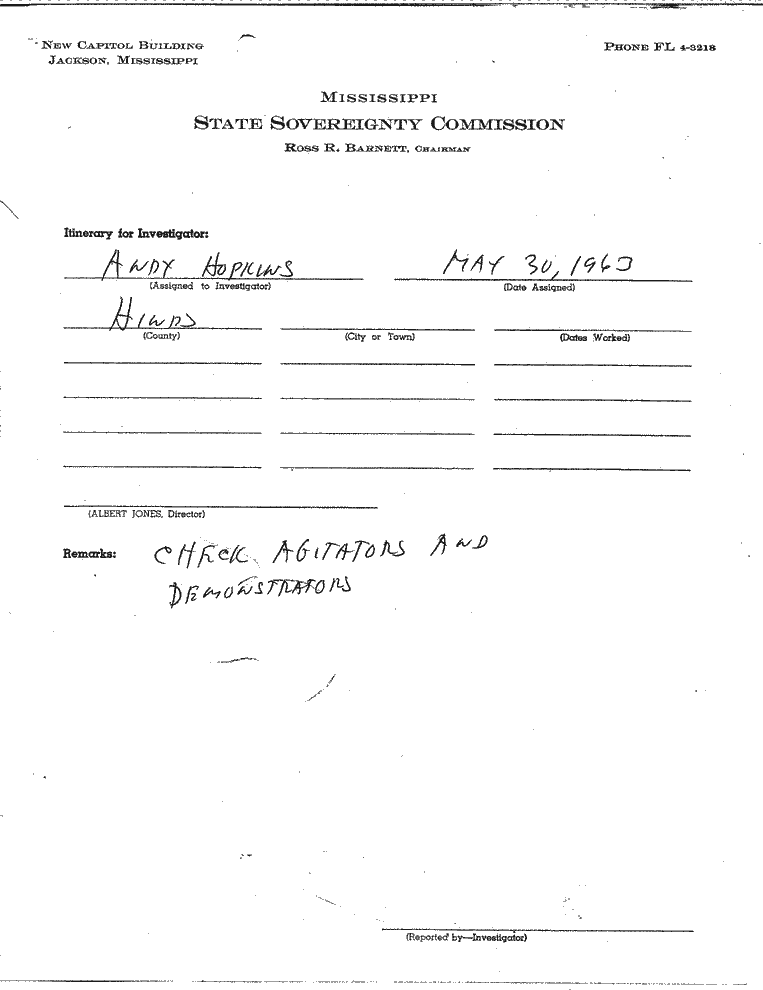 NEW CAPITOL BUILDING
JACKSON, MISSISSIPPI
PHONE FL 4-3218
MISSISSIPPI
STATE SOVEREIGNTY COMMISSION
ROSS R. BARNETT, CHAIRMAN
Itinerary for Investigator:
ANDY HOPKINS MAY 30, 1963
(Assigned to Investigator) (Date Assigned)
HINDS
(County) (City or Town) (Dates Worked)
(ALBERT JONES, Director)
Remarks: CHECK AGITATORS AND
DEMONSTRATORS
(Reported by—Investigator)